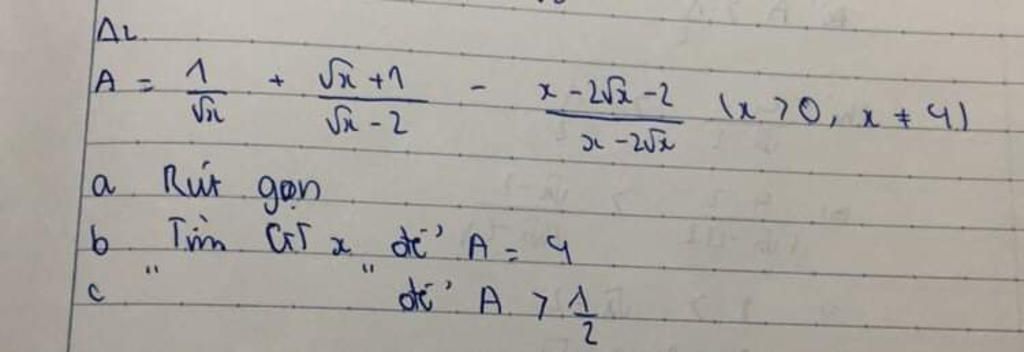 A2
A = 1/√x + (√x + 1)/(√x - 2) - (x - 2√x - 2)/(x - 2√x) (x > 0, x ≠ 4)
a Rút gọn
b Tìm GT x để A = 4
c " " để A > 1/2